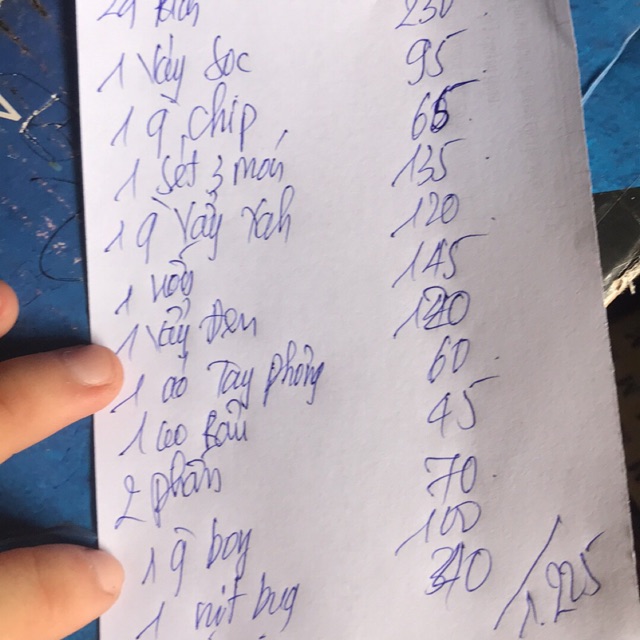 230
1 Váy Sọc 95
1 q chip 65
1 Set 3 món 135
1 q Váy 120
1 145
1 Váy đen 120
1 áo Tay phồng 60
1 45
2 phấn 70
1 q boy 100
1 nịt bụg 340
1.225